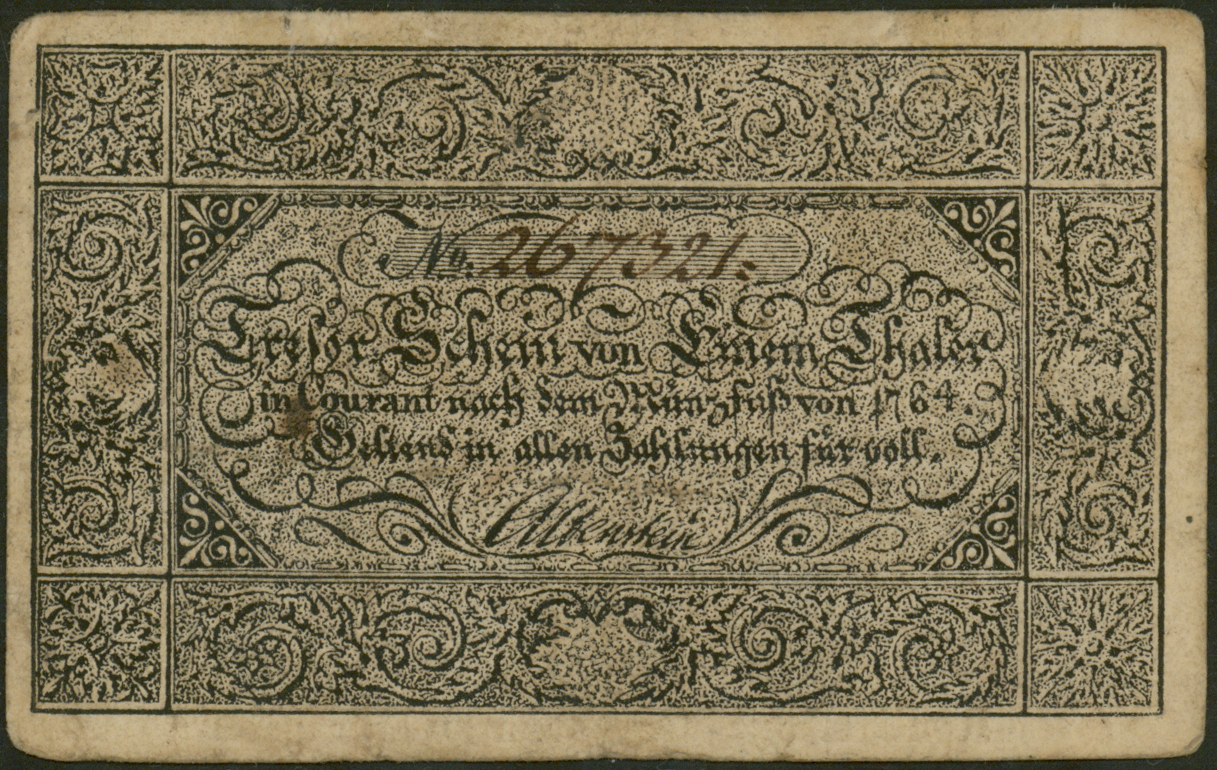 No. 267321.
Tresor-Schein von Einem Thaler
in Courant nach dem Münzfuß von 1764.
Geltend in allen Zahlungen für voll.
Altenstein